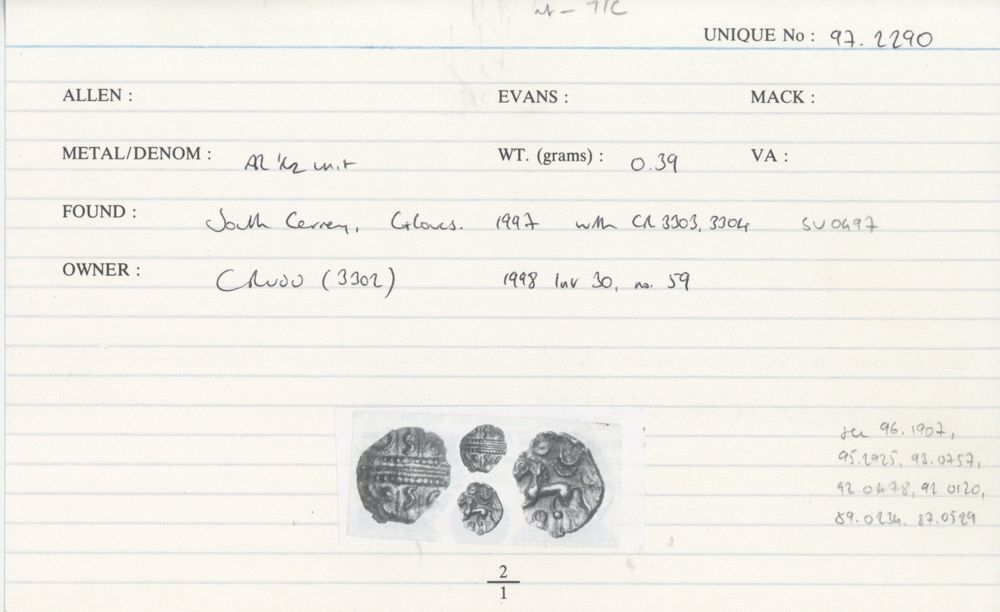 UNIQUE No : 97.2290
ALLEN : EVANS : MACK :
METAL/DENOM : AR 1/2 unit WT. (grams) : 0.39 VA :
FOUND : South Cerney, Gloucs. 1997 with CR 3303, 3304 SU0497
OWNER : CRUDD (3302) 1998 Inv 30, no. 59
see 96.1907,
95.2925, 93.0757,
92.0478, 92 0120,
89.0234, 87.0529
2
1